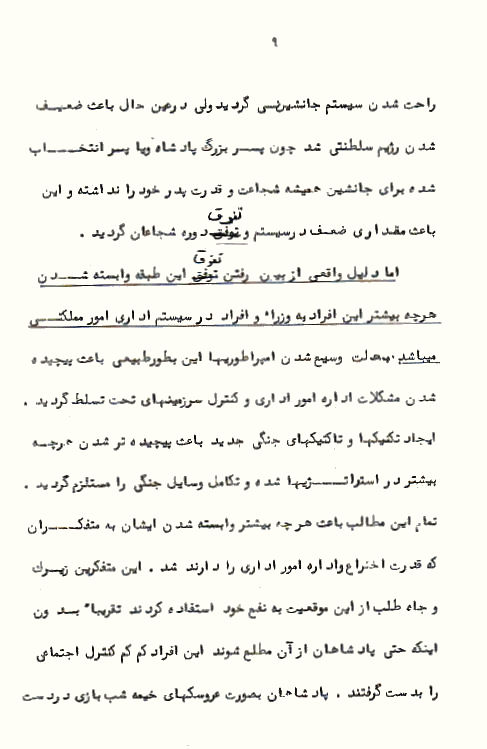 ۹
راحت شدن سیستم جانشین‌نسی گردید ولی در عین حال باعث ضعیف
شدن رژیم سلطنتی شد چون پسر بزرگ پادشاه ویا پسر انتخاب
شده برای جانشین همیشه شجاعت و قدرت پدر خود را نداشته و این
تفرق
باعث مقداری ضعف در سیستم و توفق دوره شجاعان گردید .
تفرق
اما دلیل واقعی از بین رفتن توفق این طبقه وابسته شدن
هرچه بیشتر این افراد به وزراء و افراد در سیستم اداری امور مملکتی
میباشد . بعلت وسیع شدن امپراطوریها این بطورطبیعی باعث پیچیده
شدن مشکلات اداره امور اداری و کنترل سرزمینهای تحت تسلط گردید .
ایجاد تکنیکها و تاکتیکهای جنگی جدید باعث پیچیده تر شدن هرچه
بیشتر در استراتژیها شده و تکامل وسایل جنگی را مستلزم گردید .
تمام این مطالب باعث هرچه بیشتر وابسته شدن ایشان به متفکران
که قدرت اختراع واداره امور اداری را دارند شد . این متفکرین زیرك
و جاه طلب از این موقعیت به نفع خود استفاده کردند تقریباً بدون
اینکه حتی پادشاهان از آن مطلع شوند این افراد کم کم کنترل اجتماعی
را بدست گرفتند . پادشاهان بصورت عروسکهای خیمه شب بازی در دست